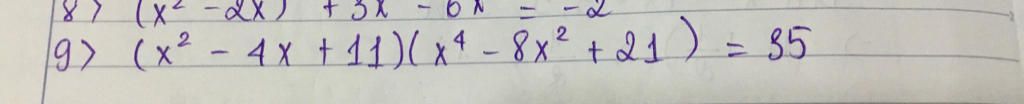 8> (x² - 2x) + 3x - 6x = -2
9> (x² - 4x + 11)(x⁴ - 8x² + 21) = 35